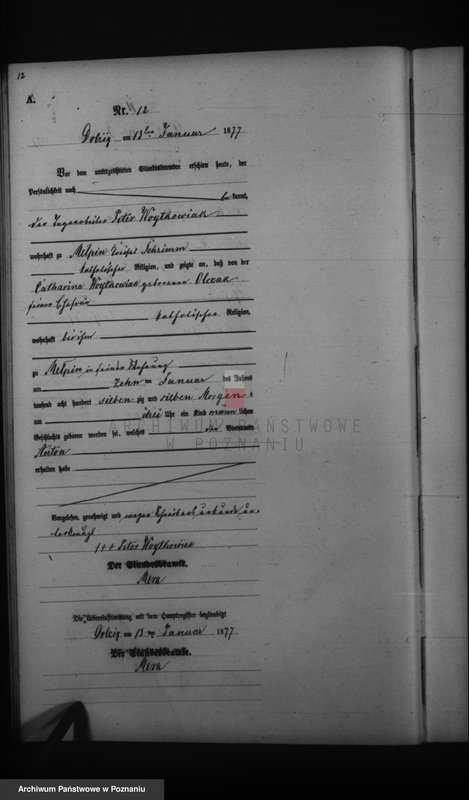 12
A.
Nr. 12
Dolzig am 13ten Januar 1877
Vor dem unterzeichneten Standesbeamten erschien heute, der
Persönlichkeit nach
be kannt,
der Tagearbeiter Peter Woytkowiak
wohnhaft zu Melpin Kreises Schrimm
katholischer Religion, und zeigte an, daß von der
Catharina Woytkowiak geborenen
seiner Ehefrau
katholischer Religion,
wohnhaft bei ihm
zu Melpin in seiner Wohnung
am zehn ten Januar des Jahres
tausend acht hundert sieben zig und sieben Morgens
um drei Uhr ein Kind männ lichen
Geschlechts geboren worden sei, welches den Vornamen
Anton
erhalten habe
Vorgelesen, genehmigt und wegen Schreibens
+++ Peter Woytkowiak
Der Standesbeamte.
Die Uebereinstimmung mit dem Hauptregister beglaubigt
Dolzig am 13 ten Januar 1877
Der Standesbeamte.
ARCHIWUM PAŃSTWOWE
W POZNANIU
Archiwum Państwowe w Poznaniu